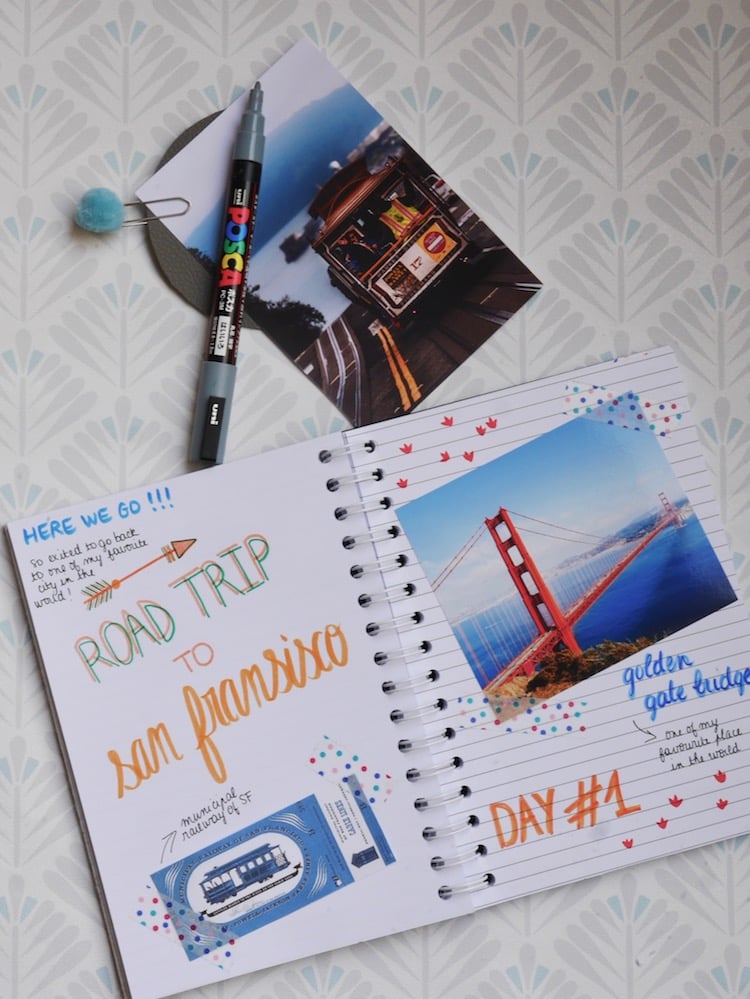 uni
POSCA
uni
17
HERE WE GO !!!
so exited to go back
to one of my favorite
city in the
world !
ROAD TRIP
TO
san fransisco
municipal
railway of SF
MUNICIPAL RAILWAY OF SAN FRANCISCO
golden
gate bridge
one of my
favourite place
in the world
DAY #1